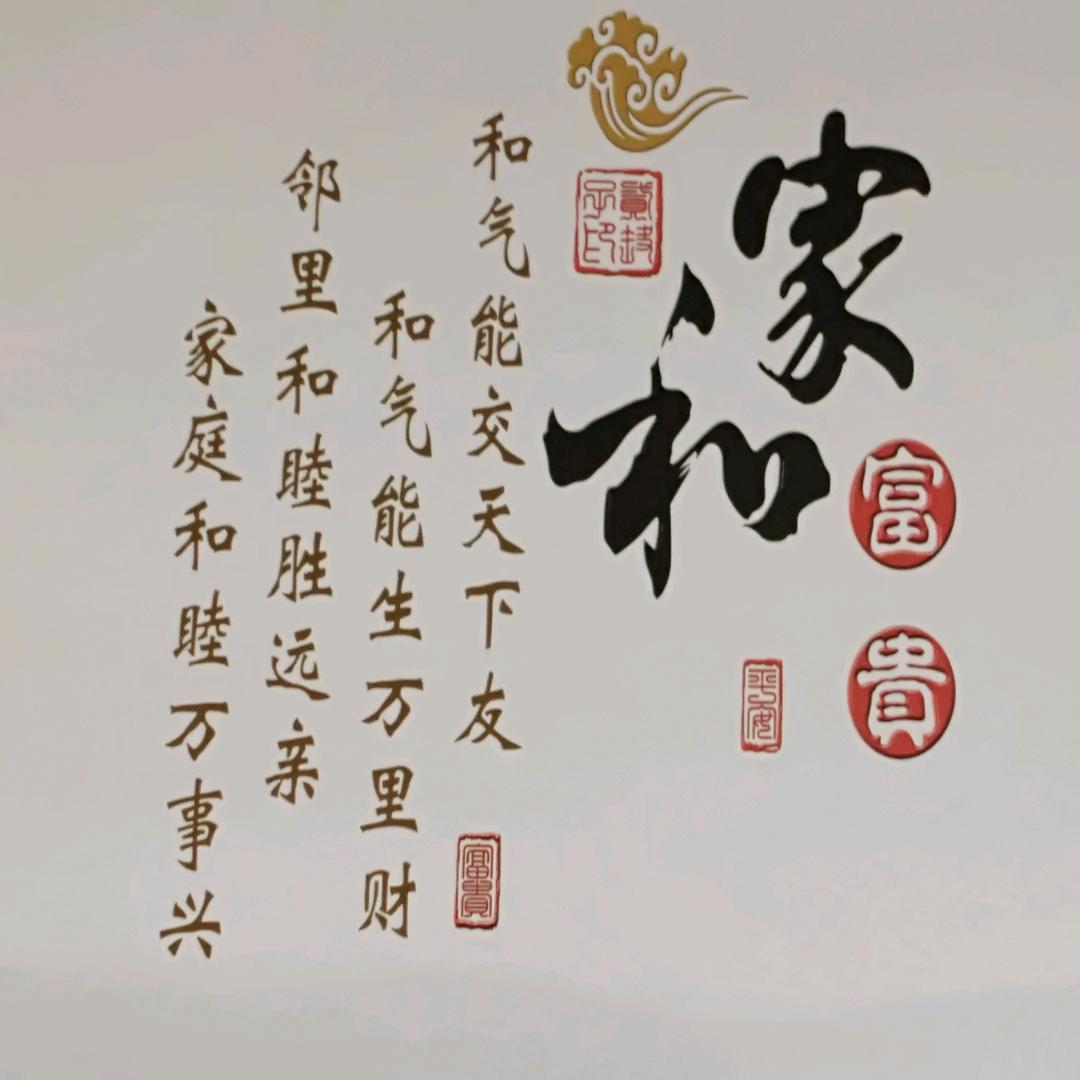 家和
富貴
平安
和气能交天下友
和气能生万里财
邻里和睦胜远亲
家庭和睦万事兴
富貴